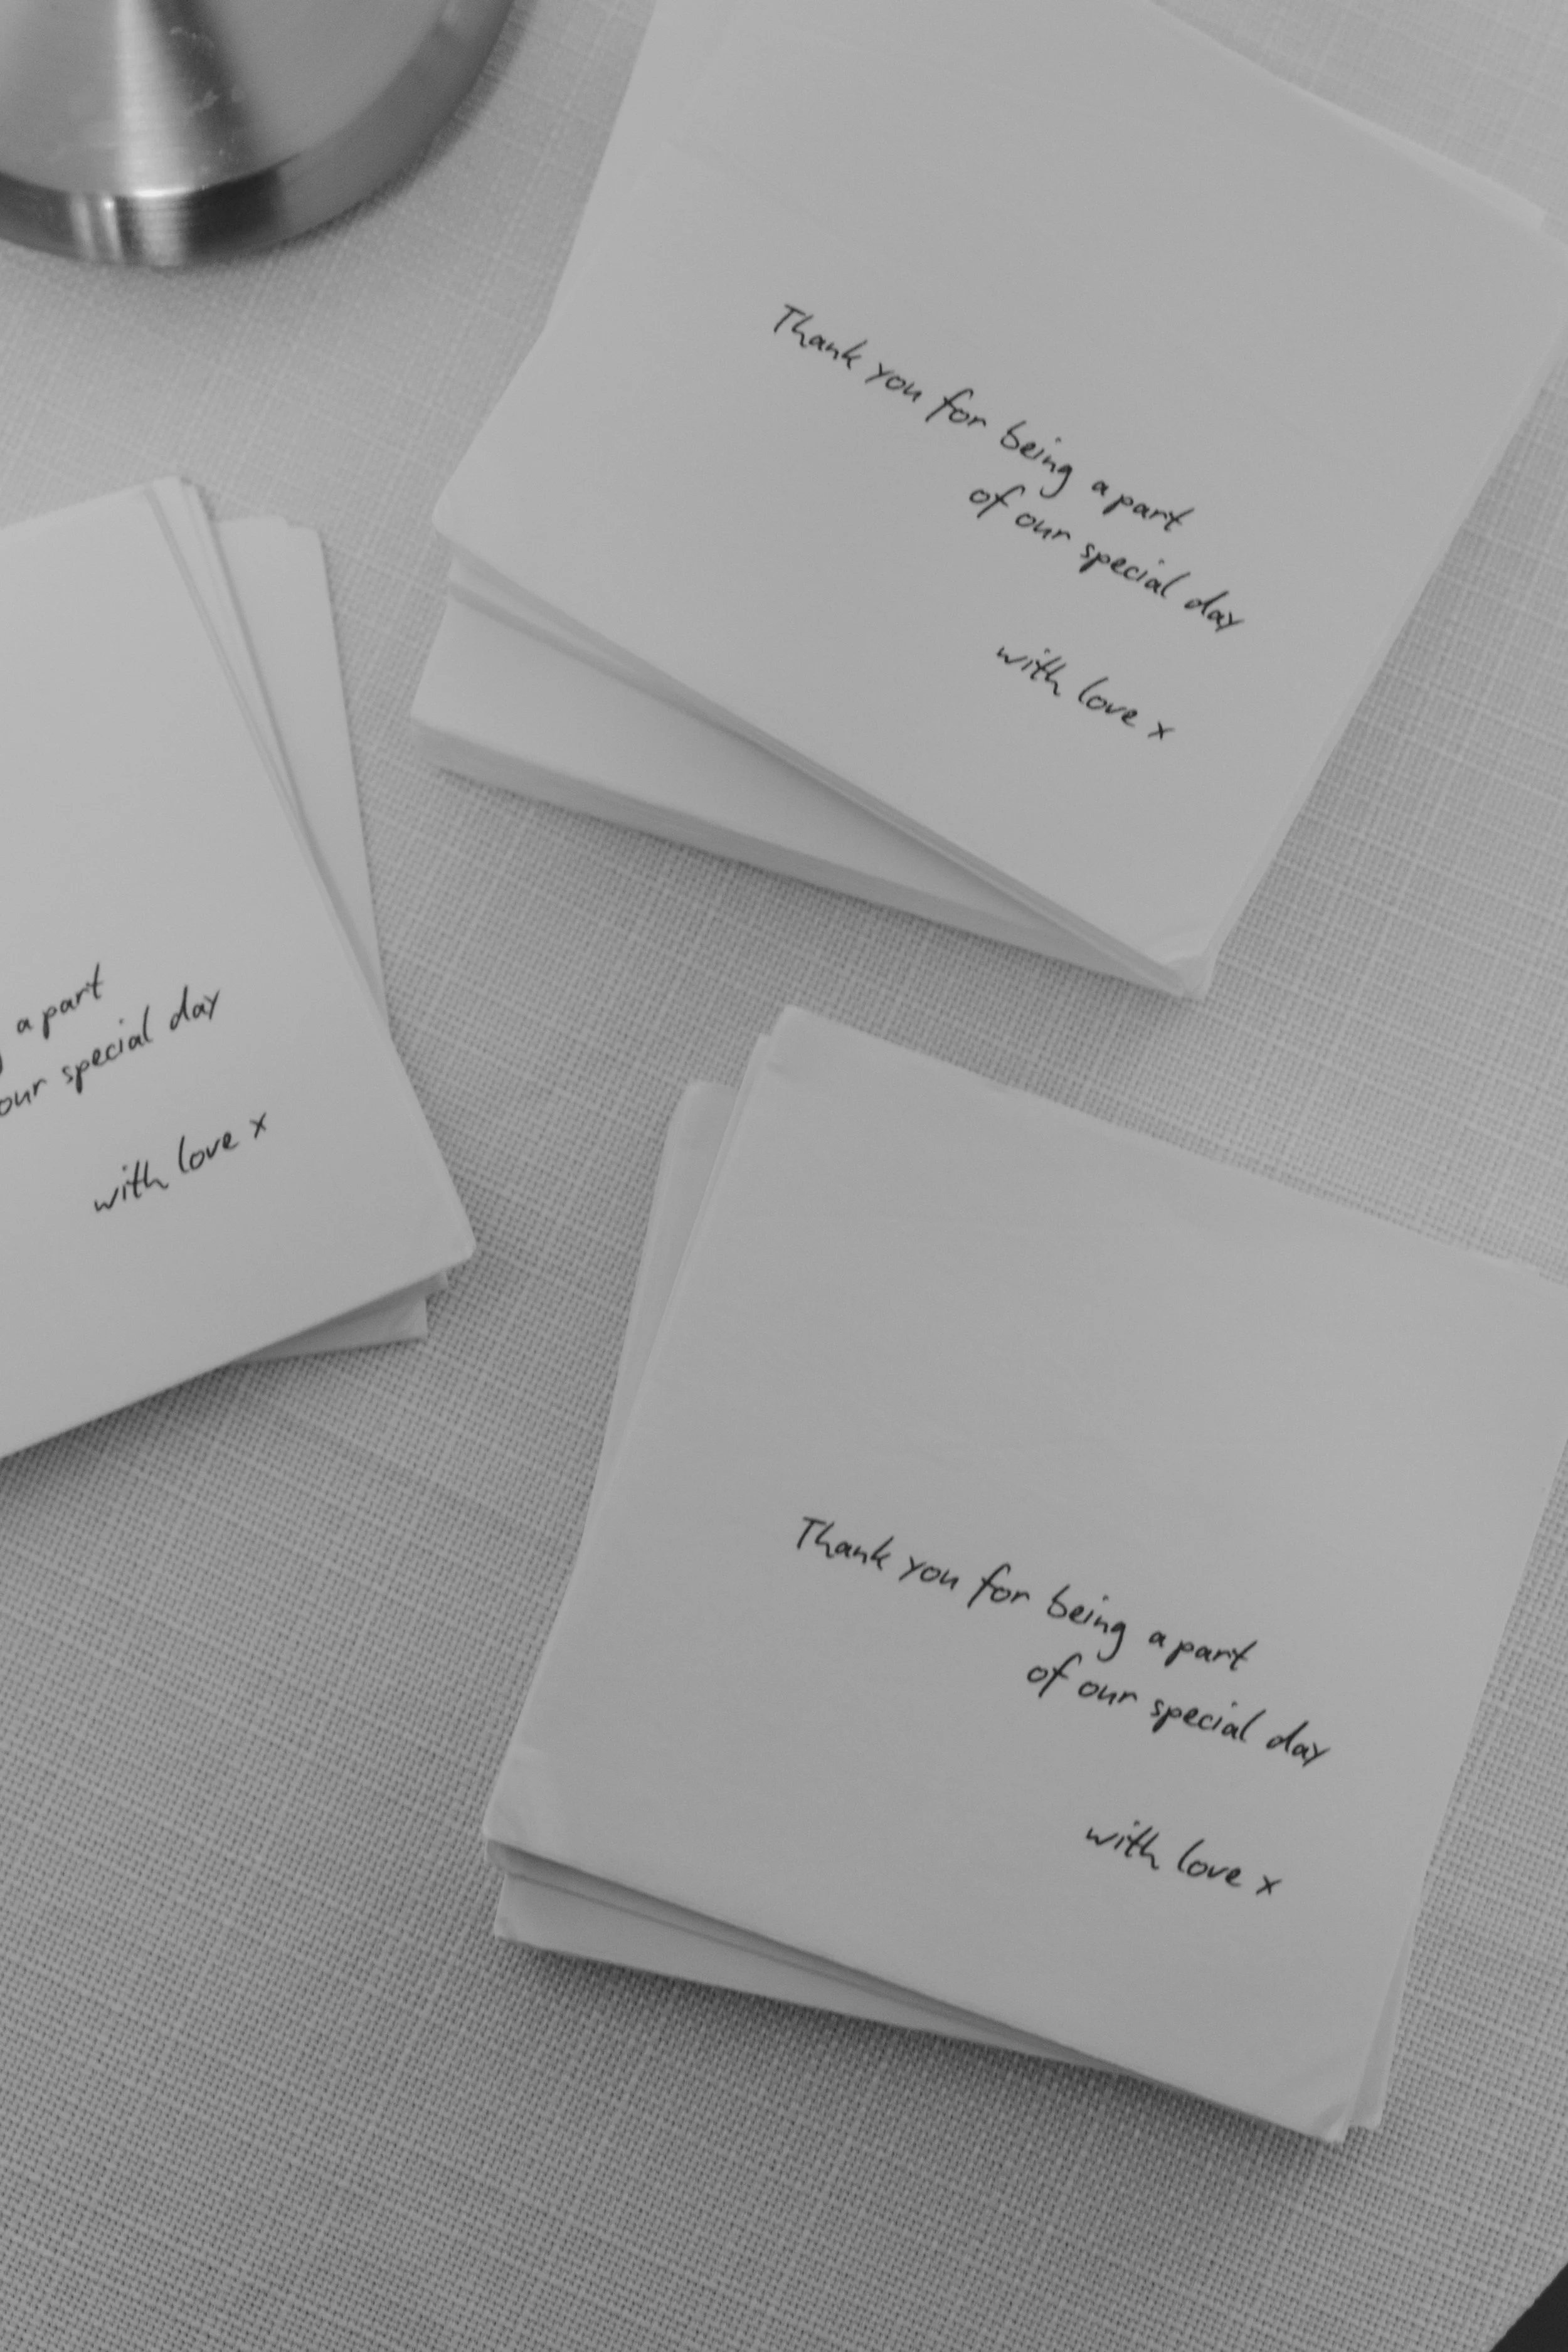 Thank you for being a part
of our special day
with love x
a part
our special day
with love x
Thank you for being a part
of our special day
with love x